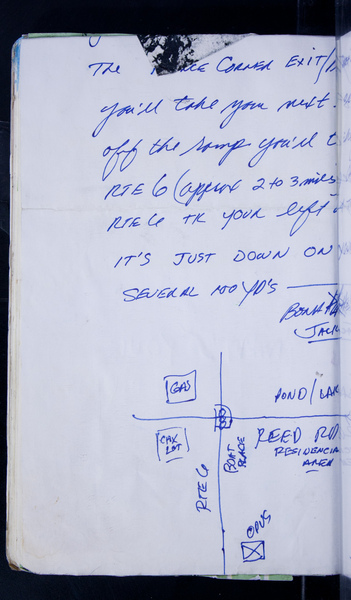 The Corner Exit/
you'll take your next
off the ramp you'll t
RTE 6 (approx 2 to 3 miles
RTE 6 TK YOUR left
IT'S JUST DOWN ON
SEVERAL 100 YD'S
JACK
GAS
POND/LAK
CAR LOT
REED RD
RESIDENCIAL
AREA
RTE 6
BOAT PLACE
OPUS